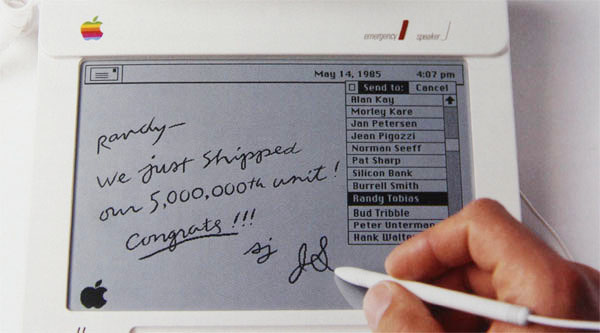 emergency speaker
May 14, 1985 4:07 pm
Send to: Cancel
Alan Kay
Morley Kare
Jan Petersen
Jean Pigozzi
Norman Seeff
Pat Sharp
Silicon Bank
Burrell Smith
Randy Tobias
Bud Tribble
Peter Unterman
Hank Walter
Randy—
We just shipped
our 5,000,000th unit!
Congrats!!!
sj
JS